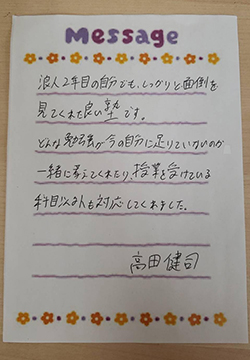 Message
浪人2年目の自分でも、しっかりと面倒を
見てくれた良い塾です。
どんな勉強が今の自分に足りていないのか
一緒に考えてくれたり、授業を受けている
科目以外も対応してくれました。
高田健司